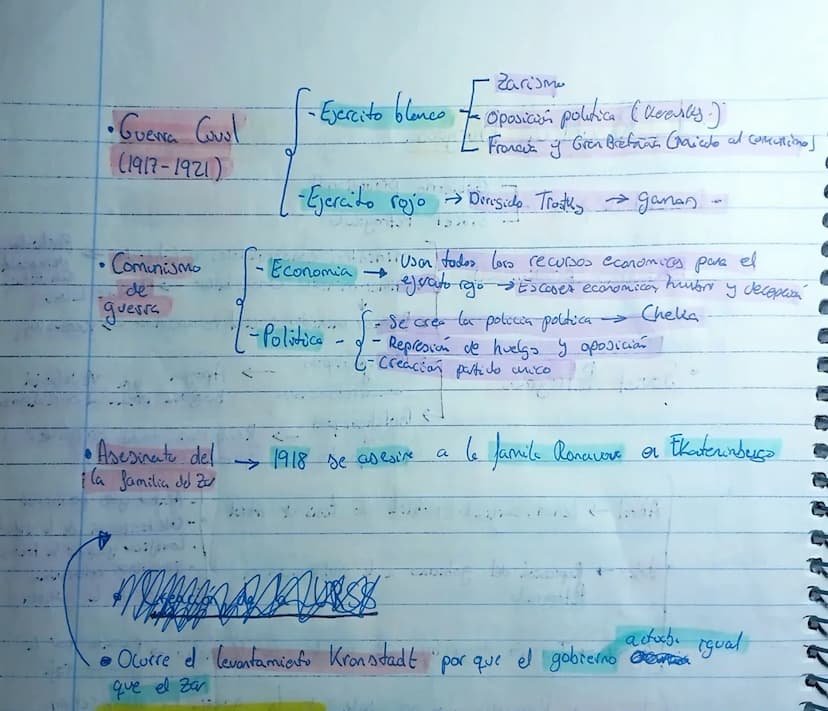 Zarismo
• Guerra Civil
(1917-1921)
- Ejercito blanco
Oposición política (Kerensky.)
Francia y Gran Bretaña (miedo al comunismo)
- Ejercito rojo → Dirigido Trostky → ganan
• Comunismo
de
guerra
- Economia → Usar todos los recursos económicos para el
ejercito rojo → Escases económica, hambre y decepción
- Politica
- Se crea la policia política → Cheka
- Represión de huelgas y oposición
- Creación partido unico
• Asesinato del
la familia del Zar
→ 1918 se asesina a la familia Romanov en Ekaterinburgo
• Ocurre el levantamiento Kronstadt por que el gobierno actuaba igual
que el Zar